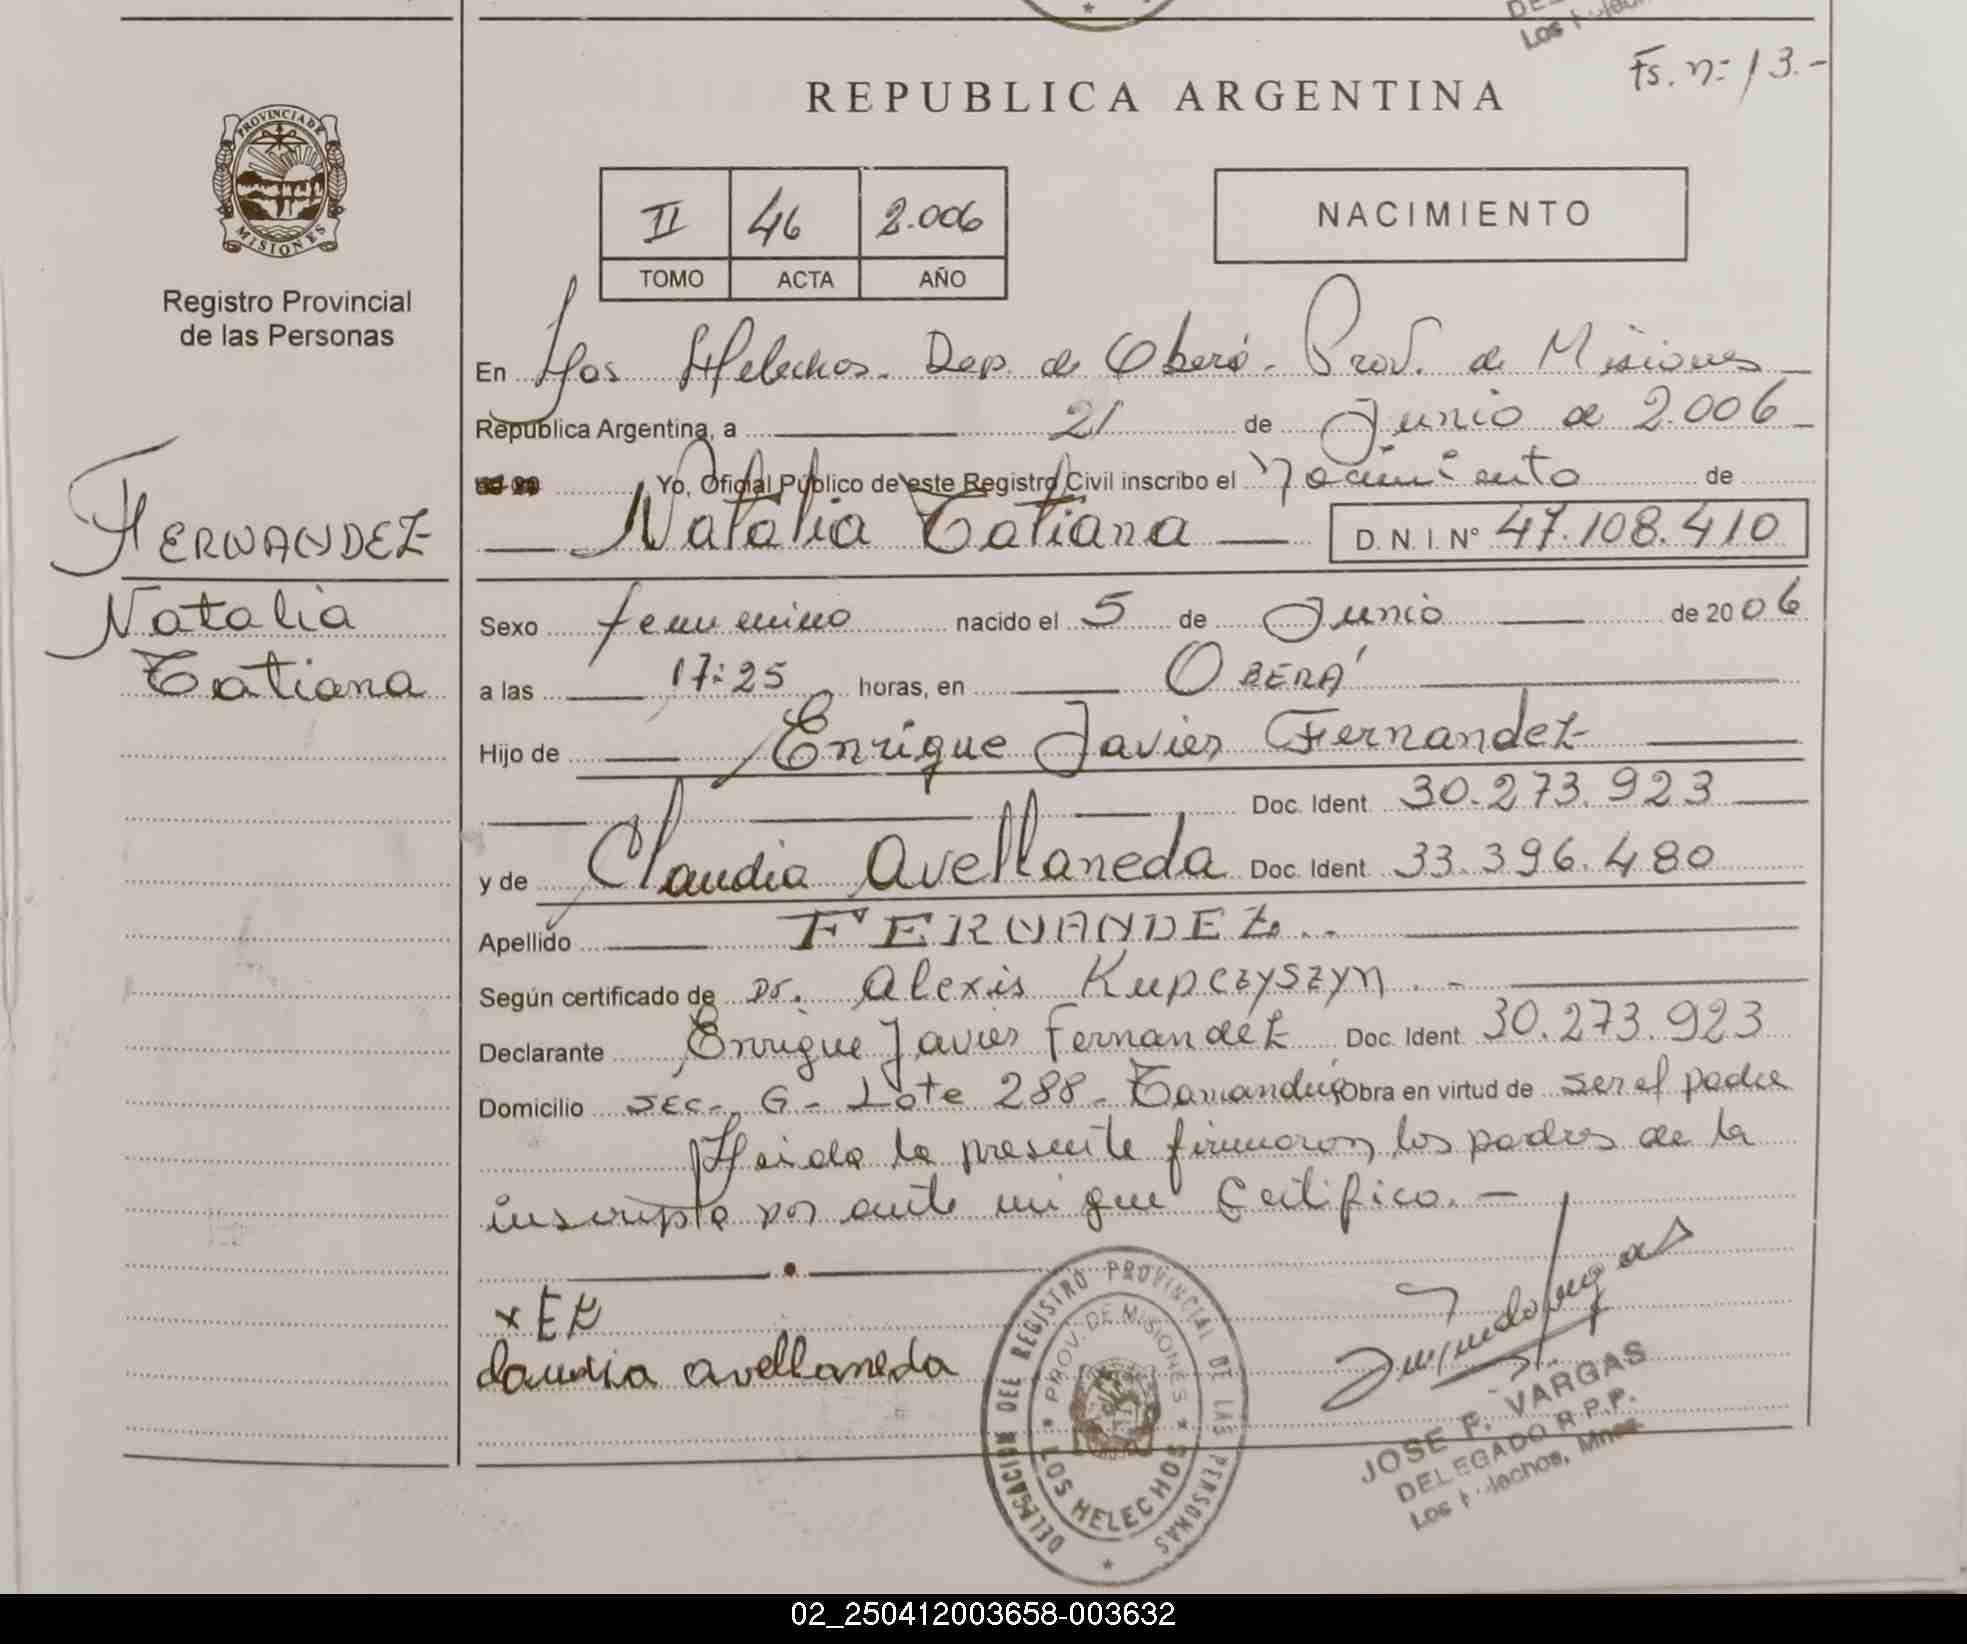 Fs. nº 13.-
REPUBLICA ARGENTINA
PROVINCIA DE
MISIONES
Registro Provincial
de las Personas
II 46 2.006
TOMO ACTA AÑO
NACIMIENTO
En Los Helechos. Dep. de Oberá. Prov. de Misiones
República Argentina, a 21 de Junio de 2.006
Yo, Oficial Público de este Registro Civil inscribo el Nacimiento de
Natalia Tatiana D. N. I. Nº 47.108.410
FERNANDEZ
Natalia
Tatiana
Sexo femenino nacido el 5 de Junio de 2006
a las 17:25 horas, en OBERÁ
Hijo de Enrique Javier Fernandez
Doc. Ident. 30.273.923
y de Claudia Avellaneda Doc. Ident. 33.396.480
Apellido FERNANDEZ..
Según certificado de Dr. Alexis Kupczyszyn.-
Declarante Enrique Javier Fernandéz Doc. Ident. 30.273.923
Domicilio Sec. G - Lote 288 - Tamanduá Obra en virtud de ser el padre
Leida la presente firmaron los padres de la
inscripta por ante mi que Certifico.-
x EF
Claudia avellaneda
DELEGACION DEL REGISTRO PROVINCIAL DE LAS PERSONAS
PROV. DE MISIONES
LOS HELECHOS
JOSE F. VARGAS
DELEGADO R.P.P.
Los Helechos, Mnes
02_250412003658-003632